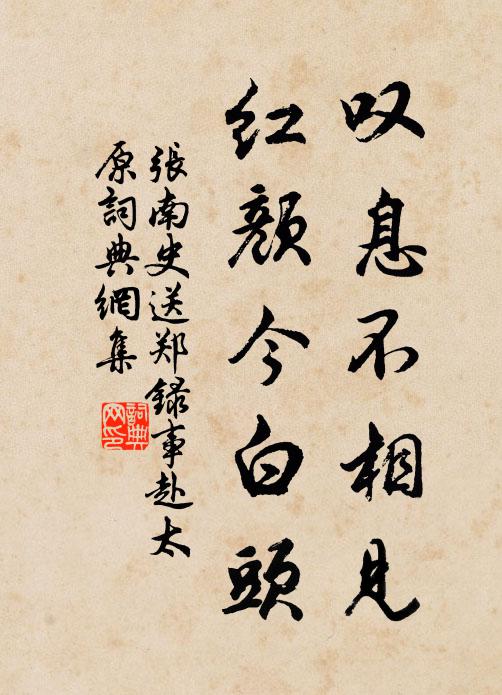 叹息不相见
红颜今白頭
張南史送郑録事赴太
原詞典網集
詞典
网印